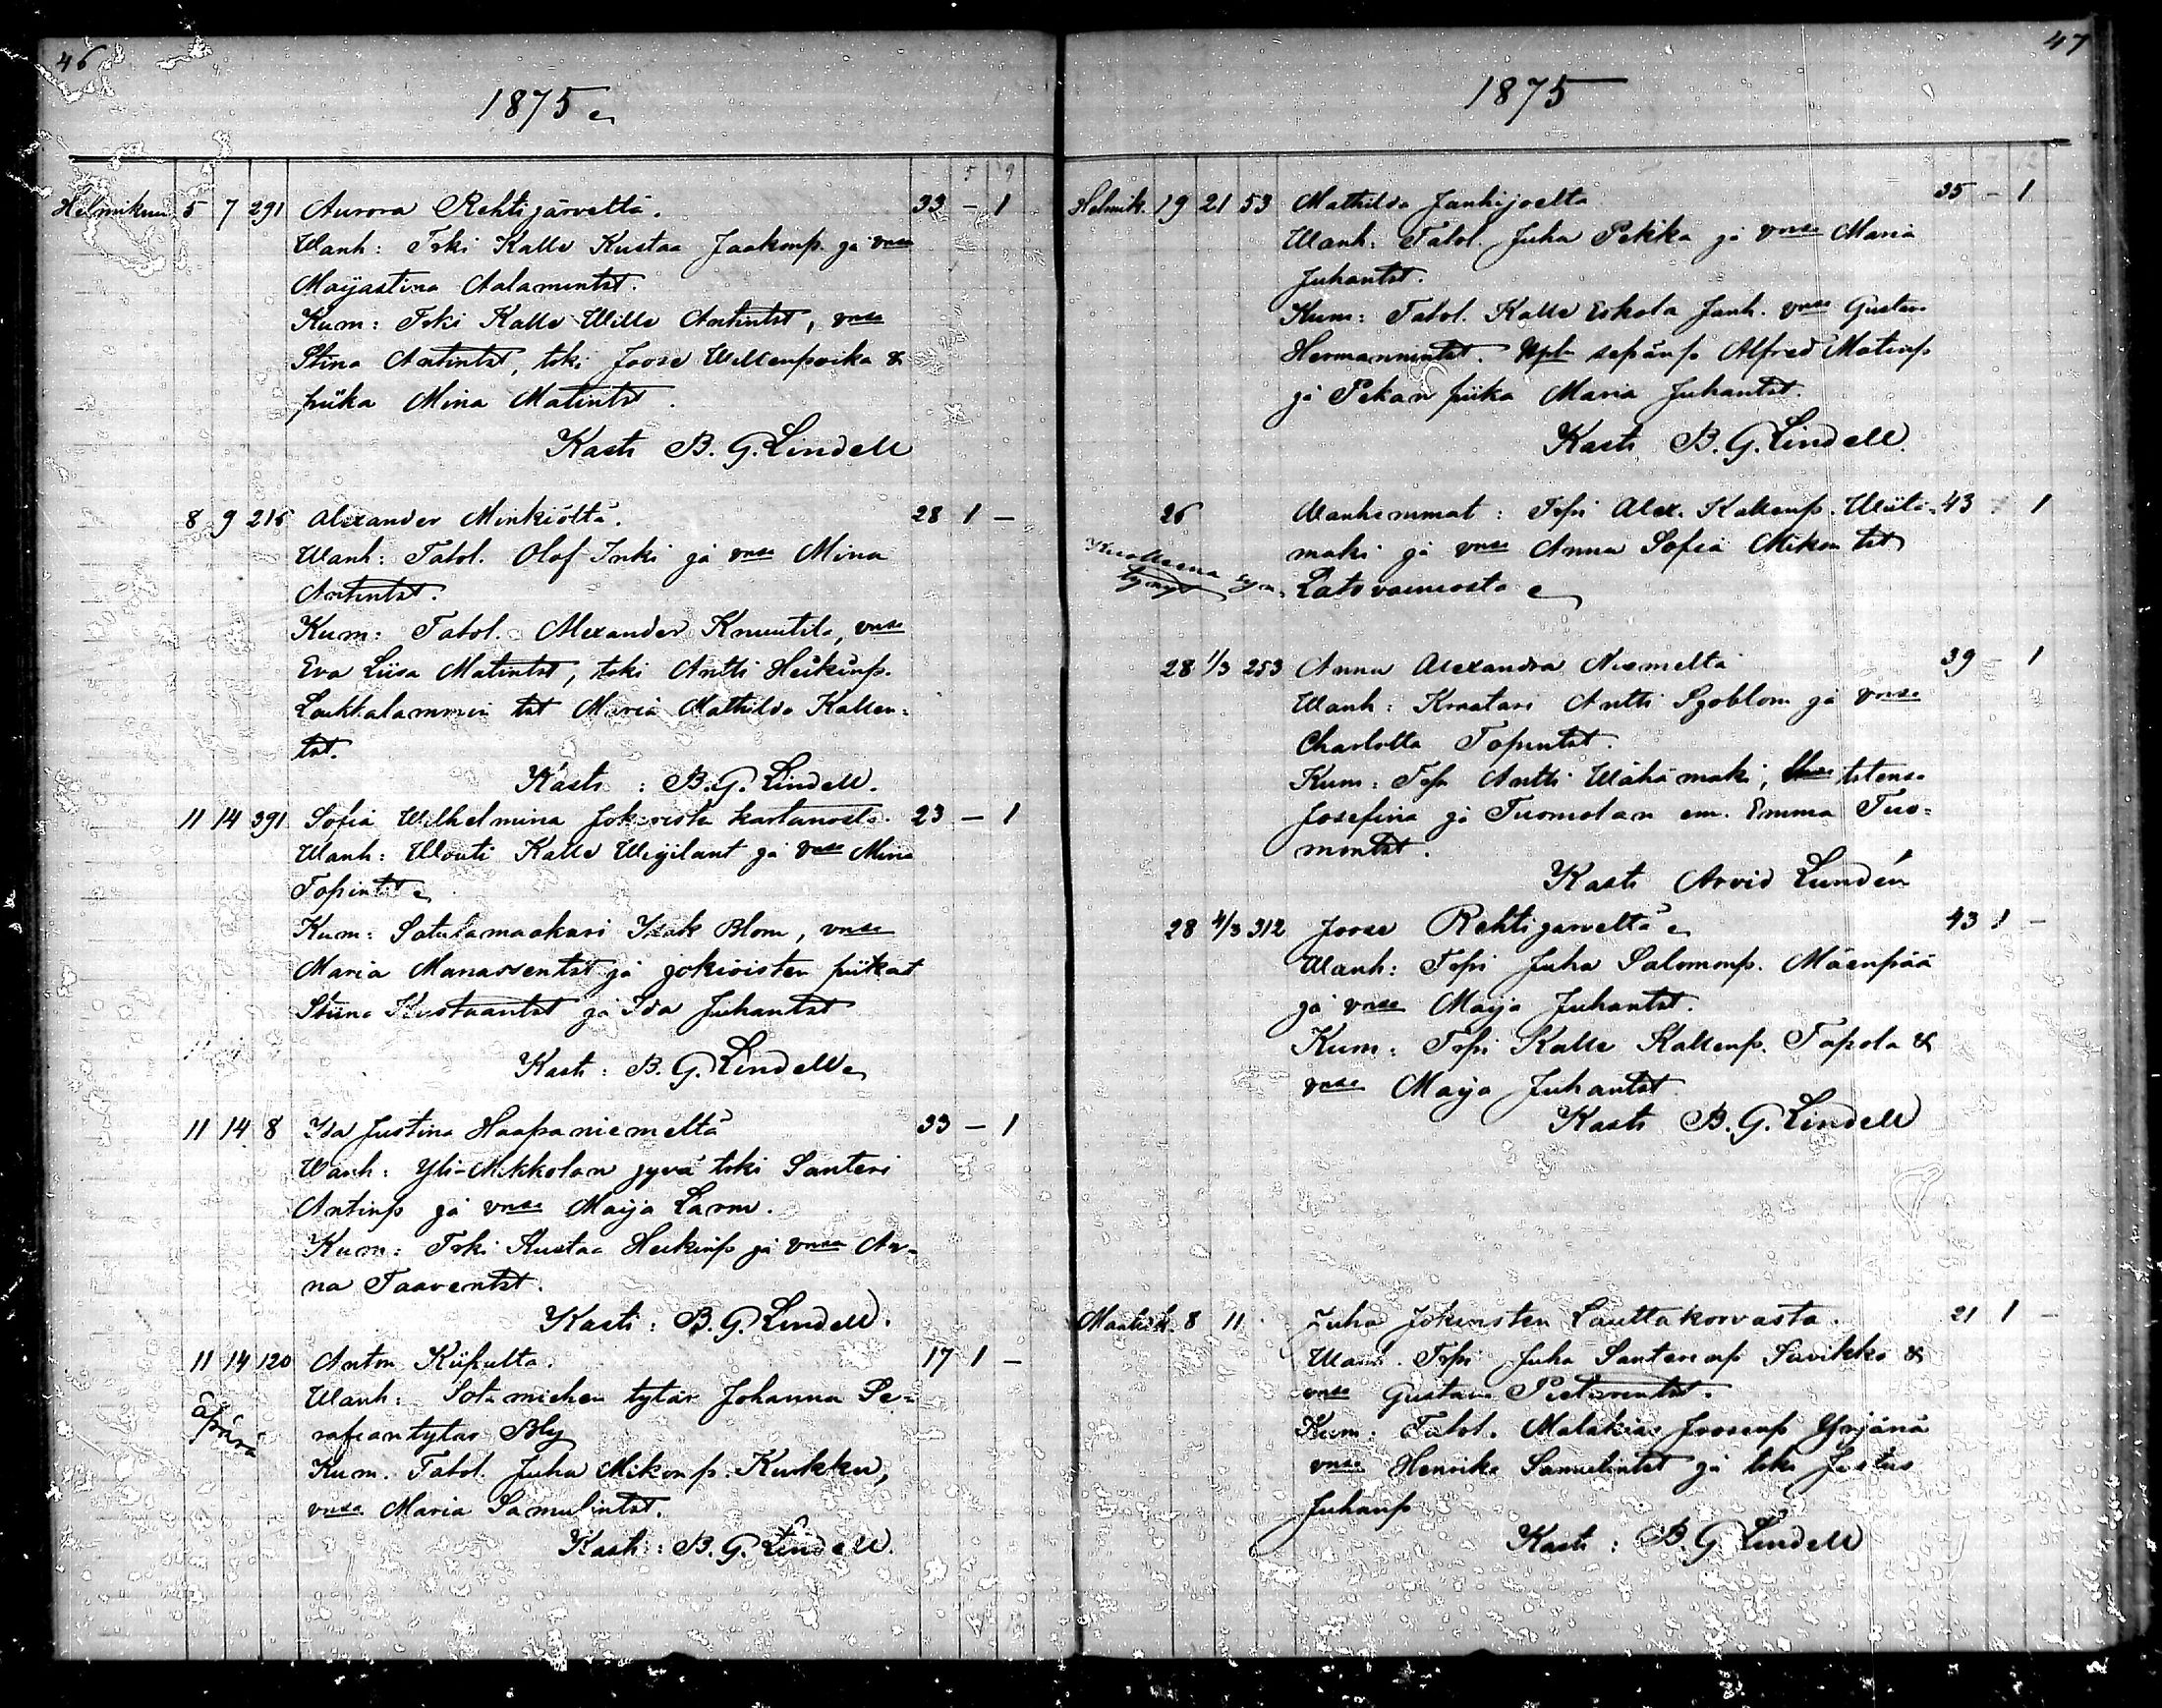 46
1875
5 9
Helmikuu 5 7 291 Aurora Rehtijärveltä. 33 - 1
Wanh: Trki Kalle Kustaa Jaakonp. ja vnsa
Maijastina Aalamintst.
Kum: Trki Kalle Wille Antintst, vnsa
Stina Antintst, trki Joose Willenpoika &
piika Mina Matintst.
Kasti B. G. Lindell
8 9 216 Alexander Minkiöltä. 28 1 -
Wanh: Talol. Olof Inki ja vnsa Mina
Antintst.
Kum: Talol. Alexander Knuutila, vnsa
Eva Liisa Matintst, trki Antti Heikinp.
Loukkalammin tst Maria Mathilda Kallen-
tst.
Kasti: B. G. Lindell.
11 14 391 Sofia Wilhelmina Jokioista kartanosta. 23 - 1
Wanh: Wouti Kalle Wigilant ja vnsa Mina
Topintst
Kum: Satulamaakari Isak Blom, vnsa
Maria Manassentst ja jokioisten piikat
Stiina Kustaantst ja Ida Juhantst
Kasti: B. G. Lindell
11 14 8 Ida Justina Haapaniemeltä 33 - 1
Wanh: Yli-Mikkolan jyvä trki Santeri
Antinp ja vnsa Maija Larm.
Kum: Trki Kustaa Heikinp ja vnsa An-
na Taaventst.
Kasti: B. G. Lindell.
11 14 120 Anton Kiipulta. 17 1 -
äpärä
Wanh: Sotamiehen tytär Johanna Se-
rafiantytar Bly
Kum. Talol. Juha Mikonp. Kurkku,
vnsa Maria Samulintst.
Kasti: B. G. Lindell.
47
1875
7 12
Helmik. 19 21 53 Mathilda Janhijoelta 35 - 1
Wanh: Talol. Juha Pekka ja vnsa Maria
Juhantst.
Kum: Talol. Kalle Eskola Janh. vnsa Gustava
Hermannintst. sepänp Alfred Matinp
ja Pekan piika Maria Juhantst.
Kasti B. G. Lindell.
26 Wanhemmat: Trpi Alex. Kallenp. Wiita- 43 1
mäki ja vnsa Anna Sofia Mikon tst
Kuolleena syn. Latovainiosta
28 1/3 253 Anna Alexandra Niemeltä 39 - 1
Wanh: Kraatari Antti Sjoblom ja vnsa
Charlotta Topintst.
Kum: Trp Antti Wähämaki, tstensa
Josefina ja Tuomolan em. Emma Tuo-
montst.
Kasti Arvid Lundén
28 4/3 312 Joose Rehtijarveltä 43 1 -
Wanh: Trpi Juha Salomonp. Mäenpää
ja vnsa Maija Juhantst.
Kum: Trpi Kalle Kallenp. Tapola &
vnsa Maija Juhantst
Kasti B. G. Lindell
Maalisk. 8 11 Juha Jokioisten Lauttakorvasta. 21 1 -
Wanh. Trpi Juha Santerinp Suvikko &
vnsa Gustava Pietarintst.
Kum: Talol. Malakias Joosenp Yrjänä
vnsa Henrika Samulintst ja trki Justus
Juhanp
Kasti: B. G Lindell